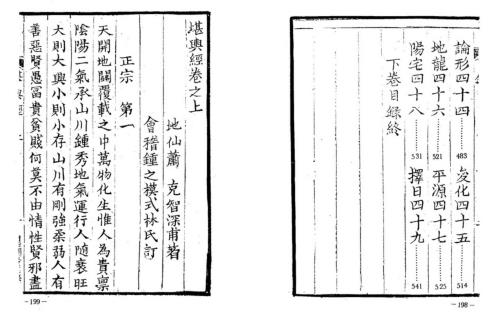 論形四十四 483 変化四十五 514
地龍四十六 521 平源四十七 525
陽宅四十八 531 擇日四十九 541
下卷目錄終
－198－
堪輿經卷之上
地仙蕭 克智深甫著
會稽鍾之模式林氏訂
正宗 第一
天開地闢覆載之中萬物化生惟人為貴禀
陰陽二氣承山川鍾秀地氣運行人隨衰旺
大則大興小則小存山川有剛強柔弱人有
善惡賢愚富貴貧賤何莫不由情性賢邪盡
－199－